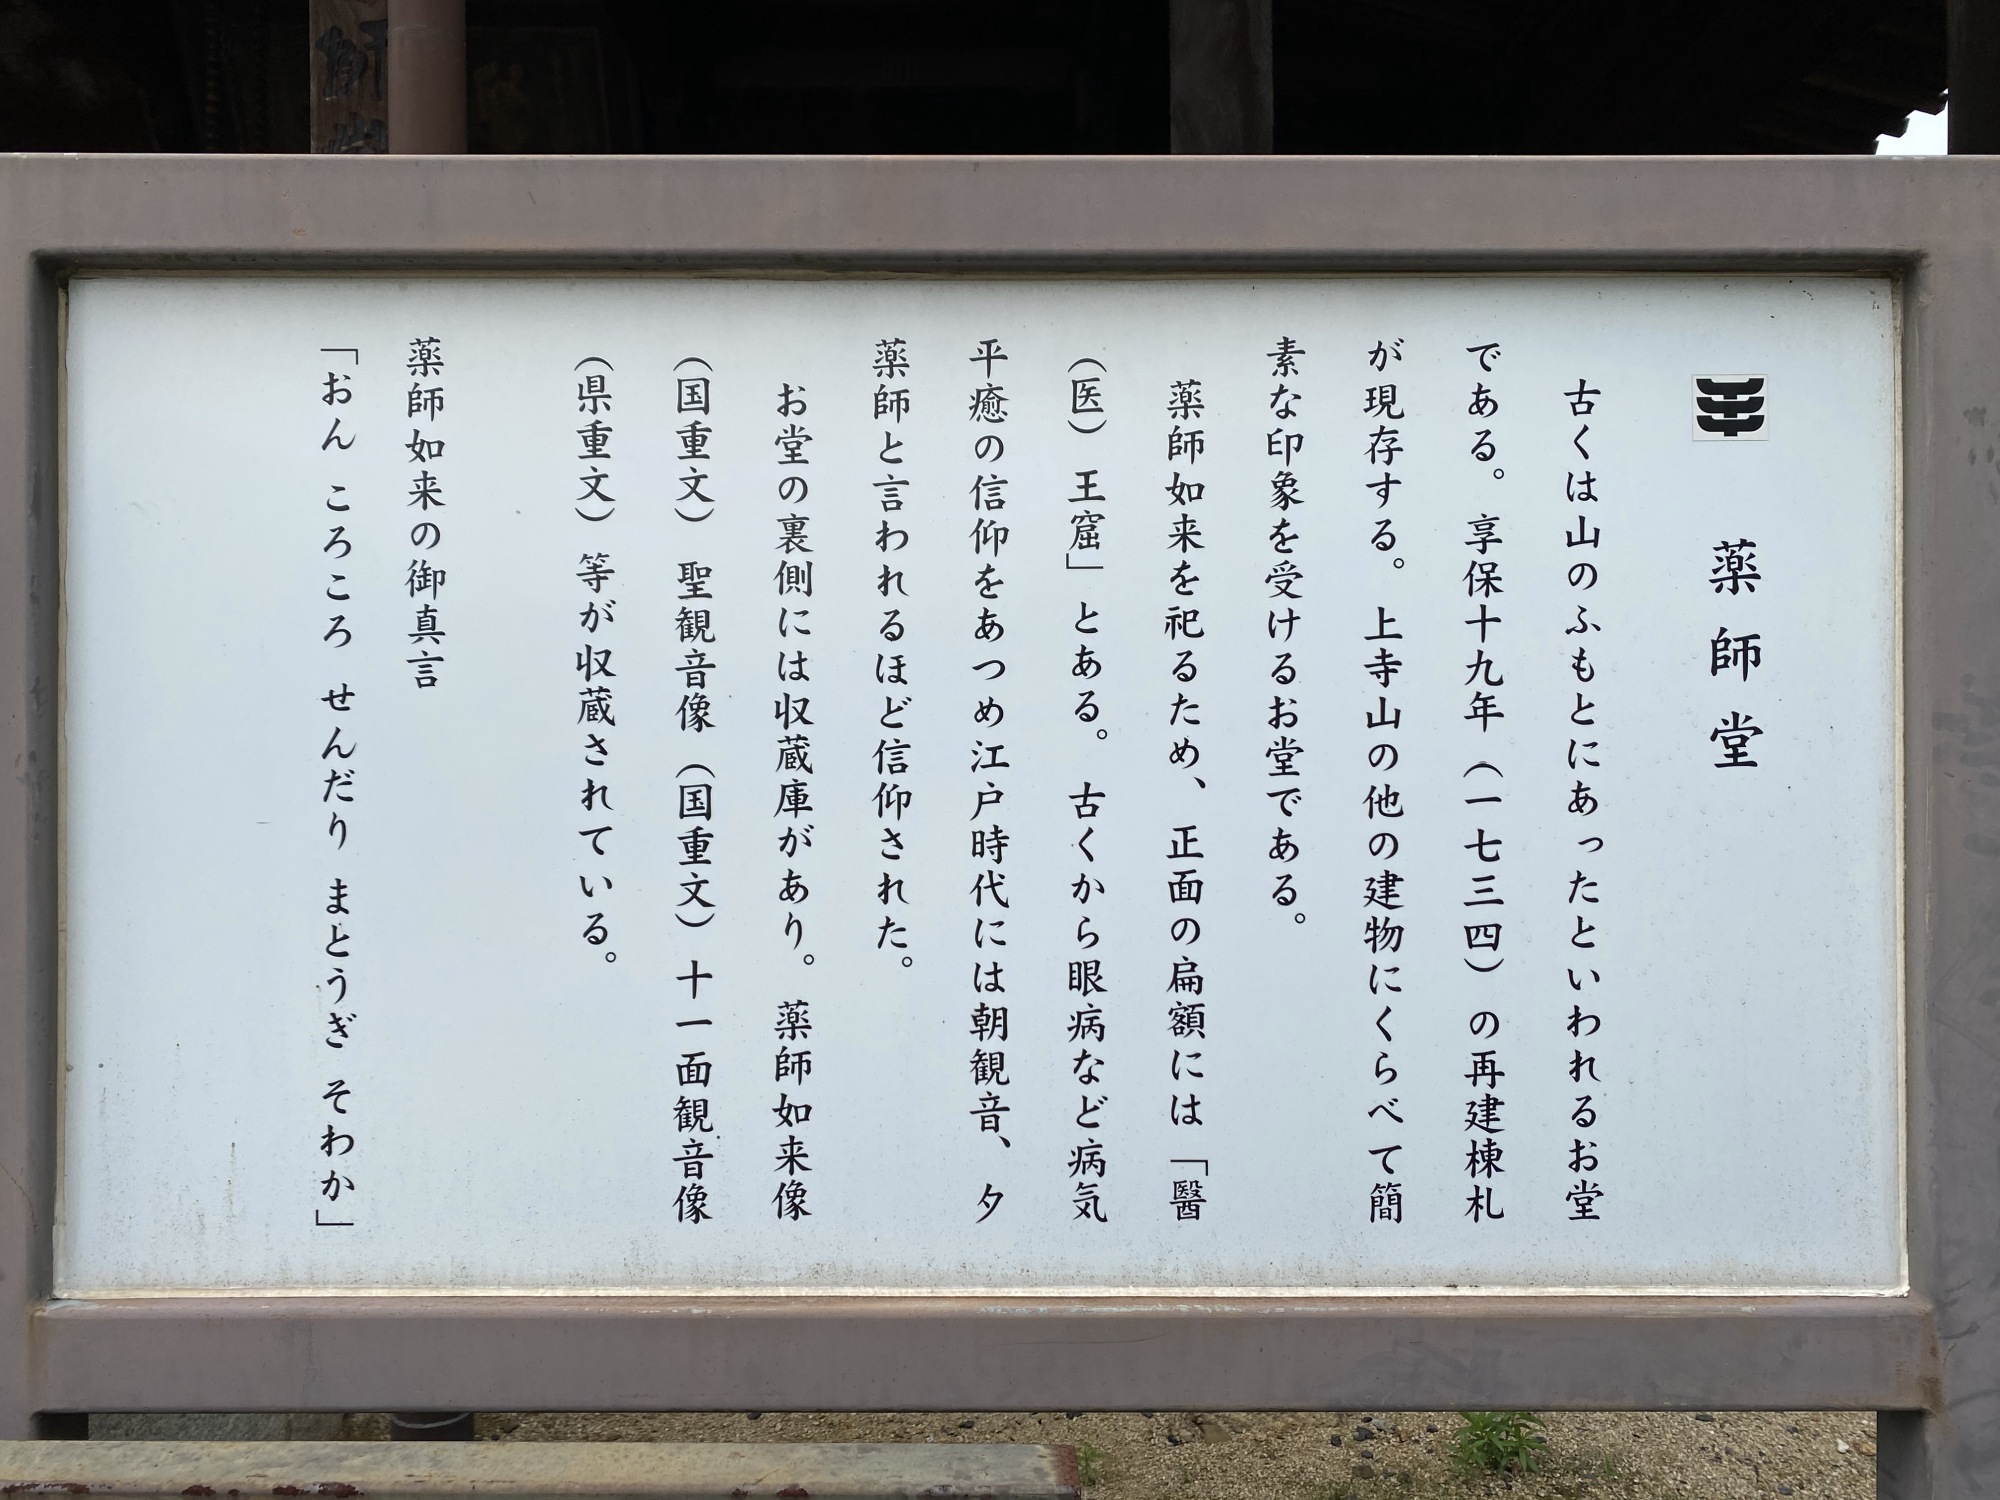 薬師堂
古くは山のふもとにあったといわれるお堂
である。享保十九年（一七三四）の再建棟札
が現存する。上寺山の他の建物にくらべて簡
素な印象を受けるお堂である。
薬師如来を祀るため、正面の扁額には「醫
（医）王窟」とある。古くから眼病など病気
平癒の信仰をあつめ江戸時代には朝観音、夕
薬師と言われるほど信仰された。
お堂の裏側には収蔵庫があり。薬師如来像
（国重文）聖観音像（国重文）十一面観音像
（県重文）等が収蔵されている。
薬師如来の御真言
「おん ころころ せんだり まとうぎ そわか」